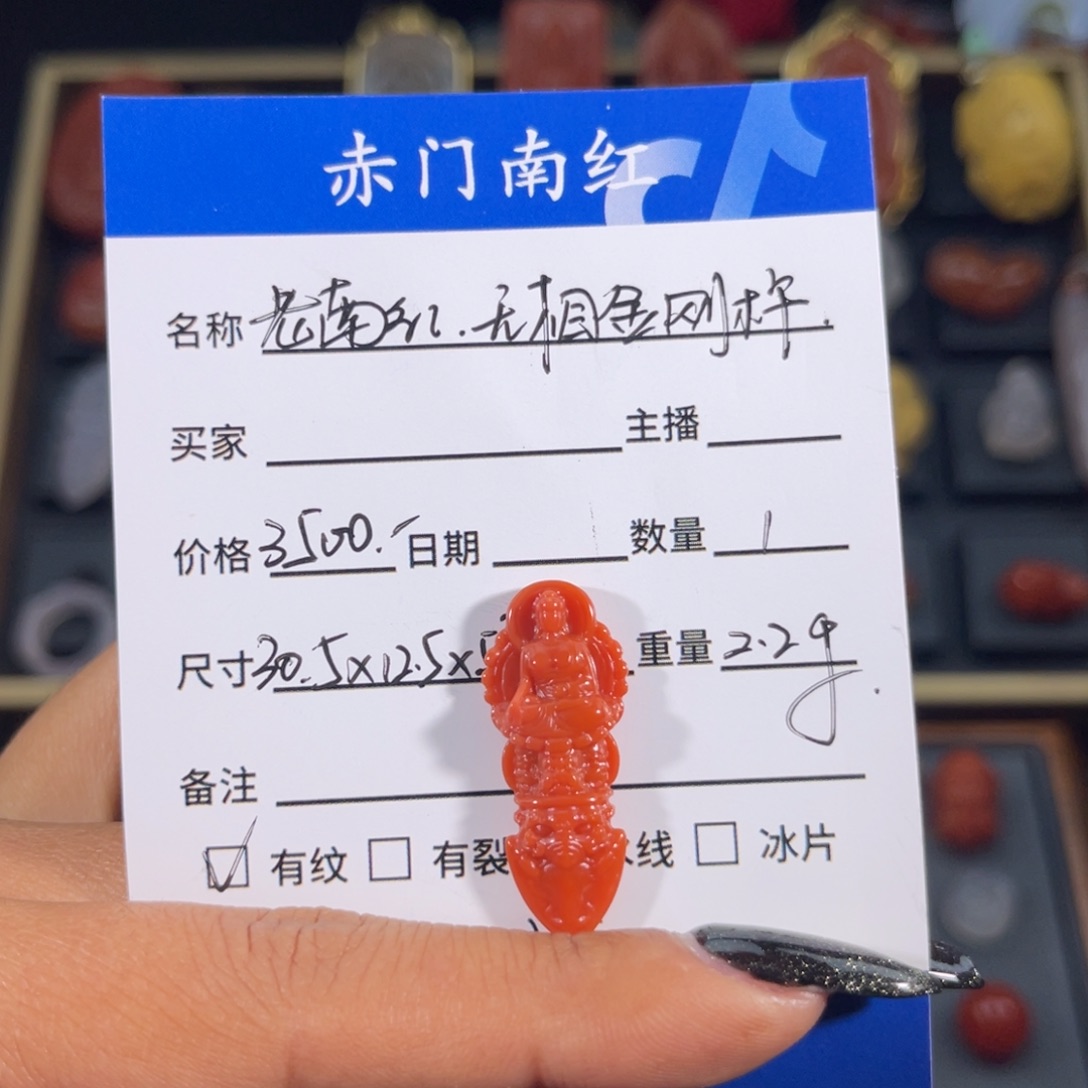 赤门南红
名称 老南红.无相金刚杵.
买家 主播
价格 3500.- 日期 数量 1
尺寸 30.5x12.5x 重量 2.2g.
备注
☑ 有纹 □ 有裂 线 □ 冰片